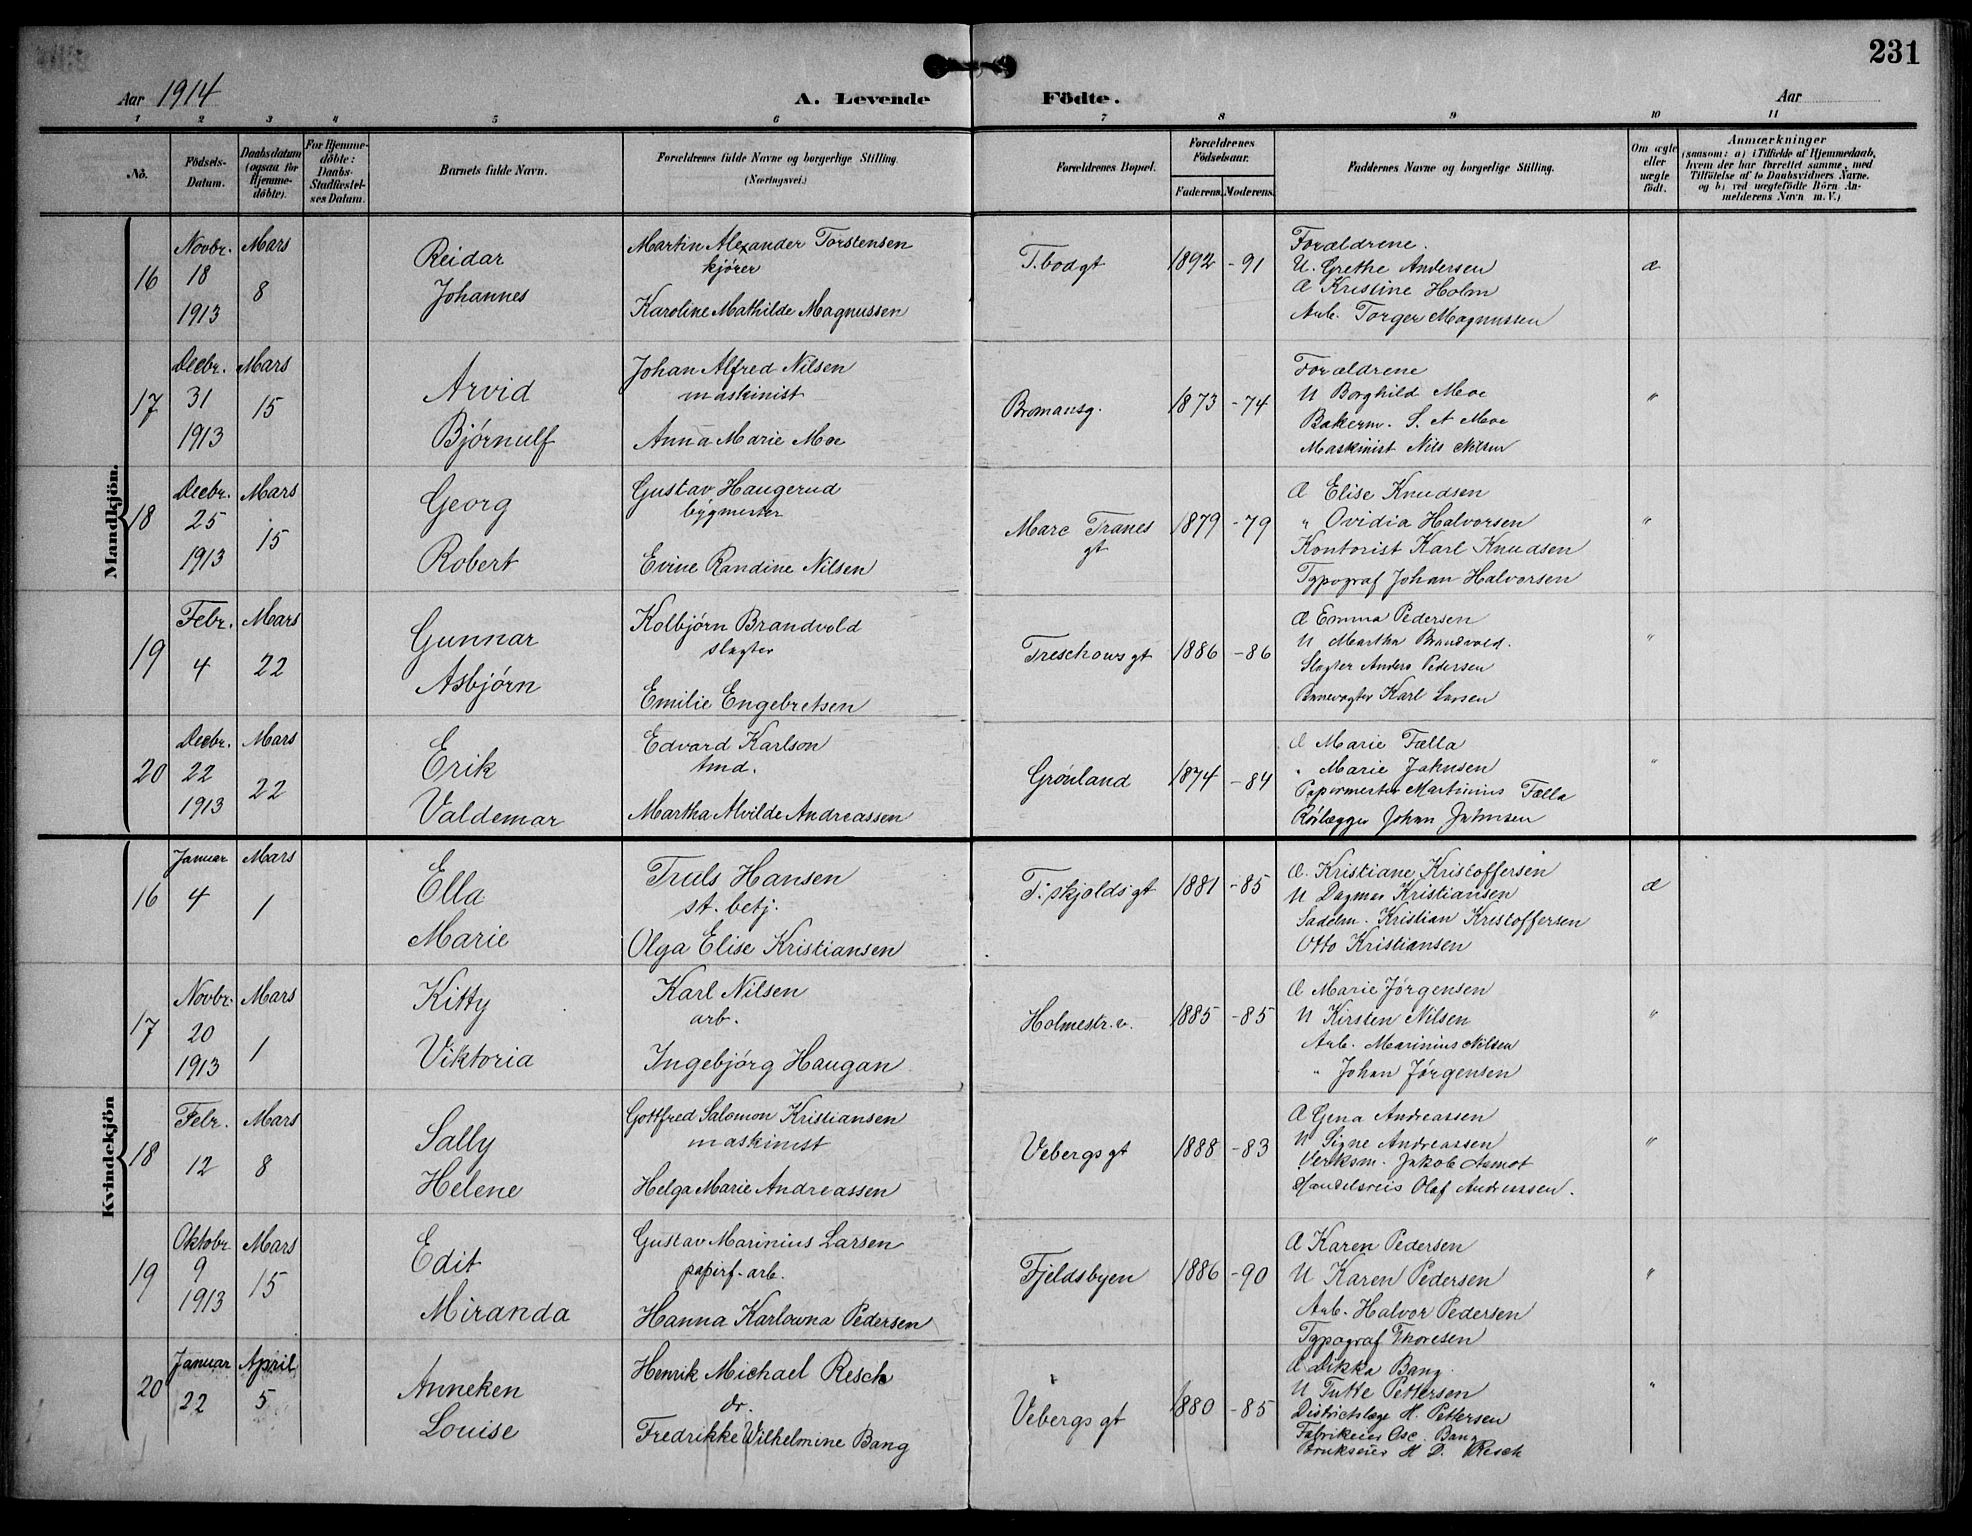 231
Aar 1914
A. Levende Födte.
Aar
1 2 3 4 5 6 7 8 9 10 11
No.
Födsels-Datum.
Daabsdatum (ogsaa for Hjemmedöbte).
For Hjemmedöbte: Daabs-Stadfæstelses Datum.
Barnets fulde Navn.
Forældrenes fulde Navne og borgerlige Stilling.
(Næringsvei.)
Forældrenes Bopæl.
Forældrenes Födselsaar.
Faderens. Moderens.
Faddernes Navne og borgerlige Stilling.
Om ægte eller uægte födt.
Anmærkninger
(saasom: a) i Tilfælde af Hjemmedaab, hvem der har forrettet samme, med Tilföielse af to Daabsvidners Navne. og b) ved uægtefödte Börn Anmelderens Navn m. V.)
Mandkjön.
16
Novbr. 18 1913
Mars 8
Reidar
Johannes
Martin Alexander Torstensen
kjører
Karoline Mathilde Magnussen
T.bodgt
1892 -91
Forældrene.
U. Grethe Andersen
Æ Kristine Holm
Arb. Torger Magnussen
æ
17
Decbr. 31 1913
Mars 15
Arvid
Bjørnulf
Johan Alfred Nilsen
maskinist
Anna Marie Moe
Bromansg.
1873 -74
Forældrene
U Borghild Moe
Bakerm. S. A Moe
Maskinist Nils Nilsen
"
18
Decbr. 25 1913
Mars 15
Georg
Robert
Gustav Haugerud
bygmester
Evine Randine Nilsen
Marc Tranes
gt
1879 -79
Æ Elise Knudsen
" Ovidia Halvorsen
Kontorist Karl Knudsen
Typograf Johan Halvorsen
"
19
Febr. 4
Mars 22
Gunnar
Asbjørn
Kolbjørn Brandvold
slagter
Emilie Engebretsen
Treschows gt
1886 -86
Æ Emma Pedersen
U Martha Brandvold.
Slagter Anders Pedersen
Banevogter Karl Larsen
"
20
Decbr. 22 1913
Mars 22
Erik
Valdemar
Edvard Karlson
tmd.
Martha Alvilde Andreassen
Grønland
1874 -84
Æ Marie Fælla
" Marie Jahnsen
Papermester Martinius Fælla
Rørlægger Johan Jahnsen
"
Kvindekjön
16
Januar 4
Mars 1
Ella
Marie
Truls Hansen
st. betj.
Olga Elise Kristiansen
T. skjolds gt
1881 -85
Æ. Kristiane Kristoffersen
U Dagmar Kristiansen
Sadelm. Kristian Kristoffersen
Otto Kristiansen
æ
17
Novbr. 20 1913
Mars 1
Kitty
Viktoria
Karl Nilsen
arb.
Ingebjørg Haugan
Holmestr. v.
1885 -85
Æ Marie Jørgensen
U Kirsten Nilsen
Arb. Marinius Nilsen
" Johan Jørgensen
"
18
Febr. 12
Mars 8
Sally
Helene
Gottfred Salomon Kristiansen
maskinist
Helga Marie Andreassen
Vebergs gt
1888 -83
Æ Gina Andreassen
U Signe Andreassen
Verksm. Jakob Aamot
Handelsreis Olaf Andreassen.
"
19
Oktobr 9 1913
Mars 15
Edit
Miranda
Gustav Marinius Larsen
papirf-arb.
Hanna Karlowna Pedersen
Fjeldsbyen
1886 -90
Æ Karen Pedersen
U Karen Pedersen
Arb. Halvor Pedersen
Typograf Thoresen
"
20
Januar 22
April 5
Anneken
Louise
Henrik Michael Resch
dr.
Fredrikke Wilhelmine Bang
Vebergs gt
1880 -85
Æ Dikka Bang.
U Tutte Pettersen
Districtslæge H. Pettersen
Fabrikeier Osc. Bang
Brukseier H D. Resch
"